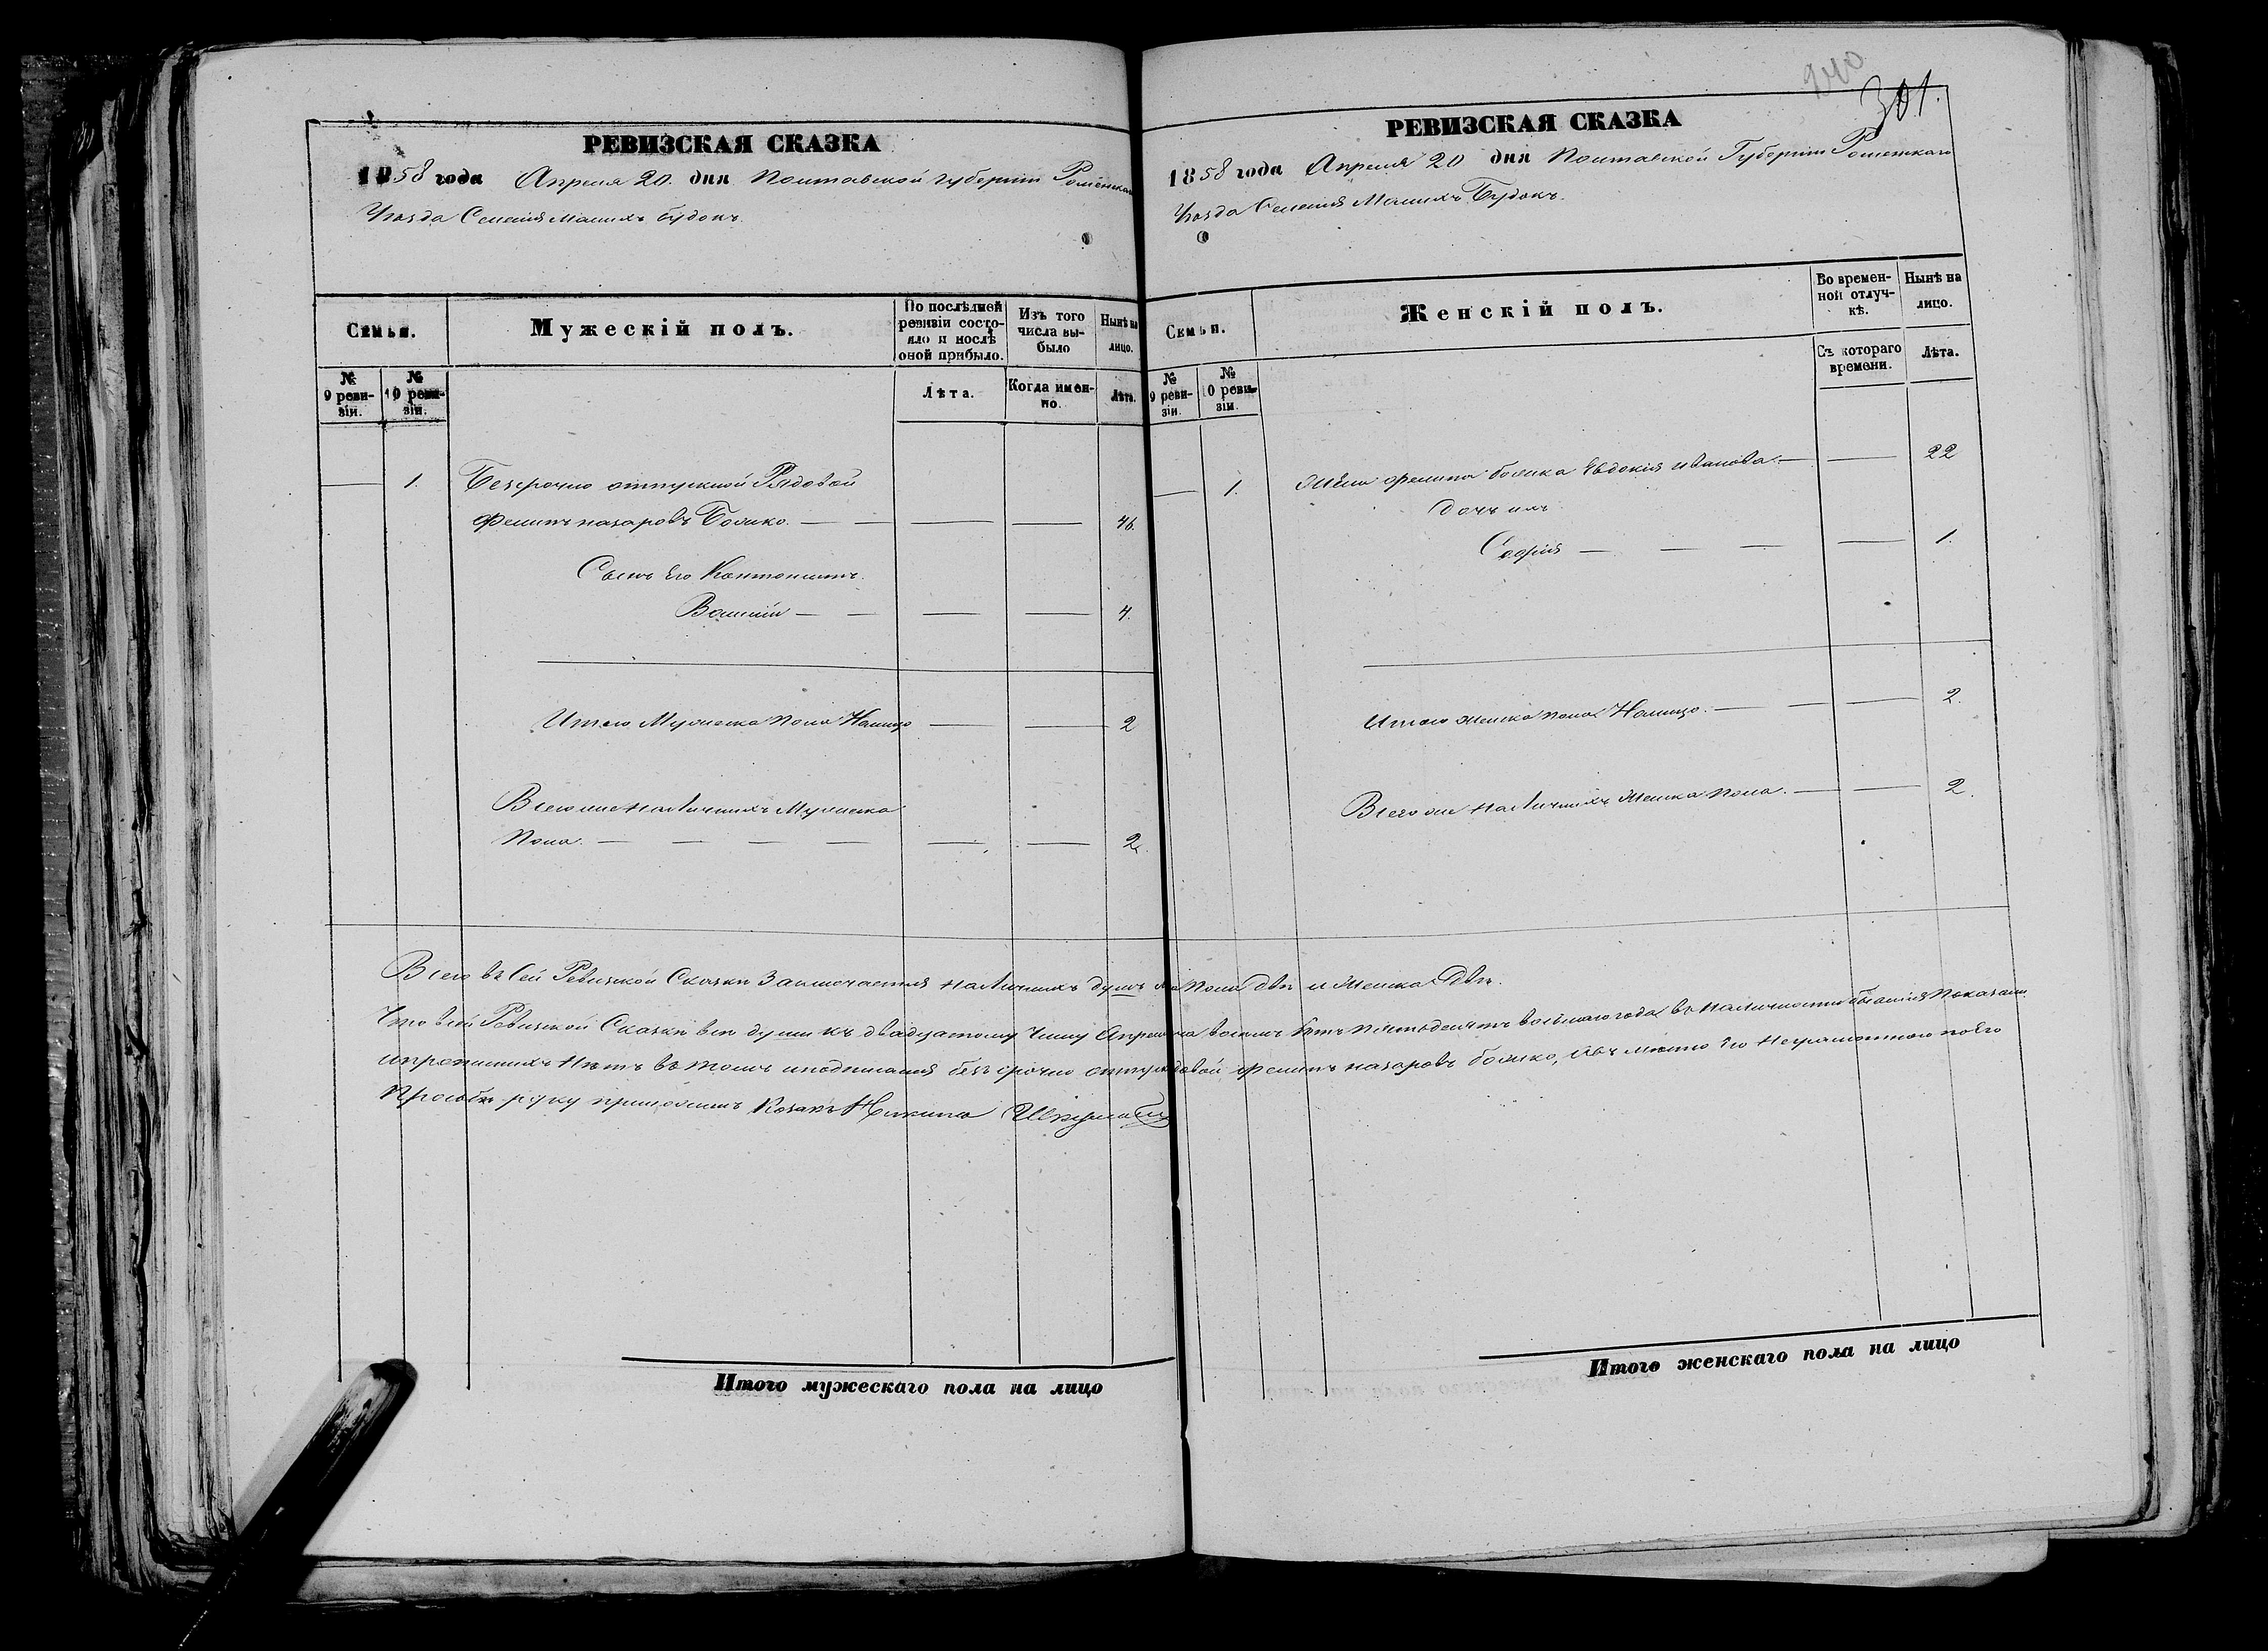 РЕВИЗСКАЯ СКАЗКА
1858 года Апреля 20. дня Полтавской губернiи Роменскаго
Уѣзда Селенiя Малихъ будокъ.
Семьи.
Мужескій полъ.
По послѣдней ревизіи состояло и послѣ оной прибыло.
Изъ того числа выбыло
Нынѣ на лицо.
№ 9 ревизіи.
№ 10 ревизіи.
Лѣта.
Когда именно.
Лѣта.
1. Безсрочно отпускной Рядовой
Филипъ назаровъ Божко. — — — — 46.
Сынъ Его Кантонистъ.
Василий — — — — 4.
Итого Мужеска пола Налицо — — 2
Всего же наличнихъ Мужеска
Пола. — — — — — — 2.
Итого мужескаго пола на лицо
240
301.
РЕВИЗСКАЯ СКАЗКА
1858 года Апреля 20 дня Полтавской Губернiи Роменскаго
Уѣзда Селенiя Малихъ Будокъ.
Семьи.
Женскій полъ.
Во временной отлучкѣ.
Нынѣ на лицо.
№ 9 ревизіи.
№ 10 ревизіи.
Съ котораго времени.
Лѣта.
1. Жена Филипа божка Евдокия иванова. — — 22
дочъ ихъ
Софiя — — — — 1.
Итого женска пола Налицо. — — — 2.
Всего же наличнихъ Женска пола. — — 2.
Всего въ Сей Ревизской Сказки Заключается наличнихъ душъ пола двѣ и Женска двѣ.
Что въ сей Ревизской Сказкѣ все души къ двадцатому Числу Апреля восемъ сотъ пятьдесятъ восмаго года въ наличности бывшiя показани
ипрописнихъ Нѣтъ въ томъ иподписался безъ срочно филипъ назаровъ божко, Авъ мѣсто Его Неграмотного поЕго
Просьбѣ руку приложилъ Козакъ Никита
Итого женскаго пола на лицо